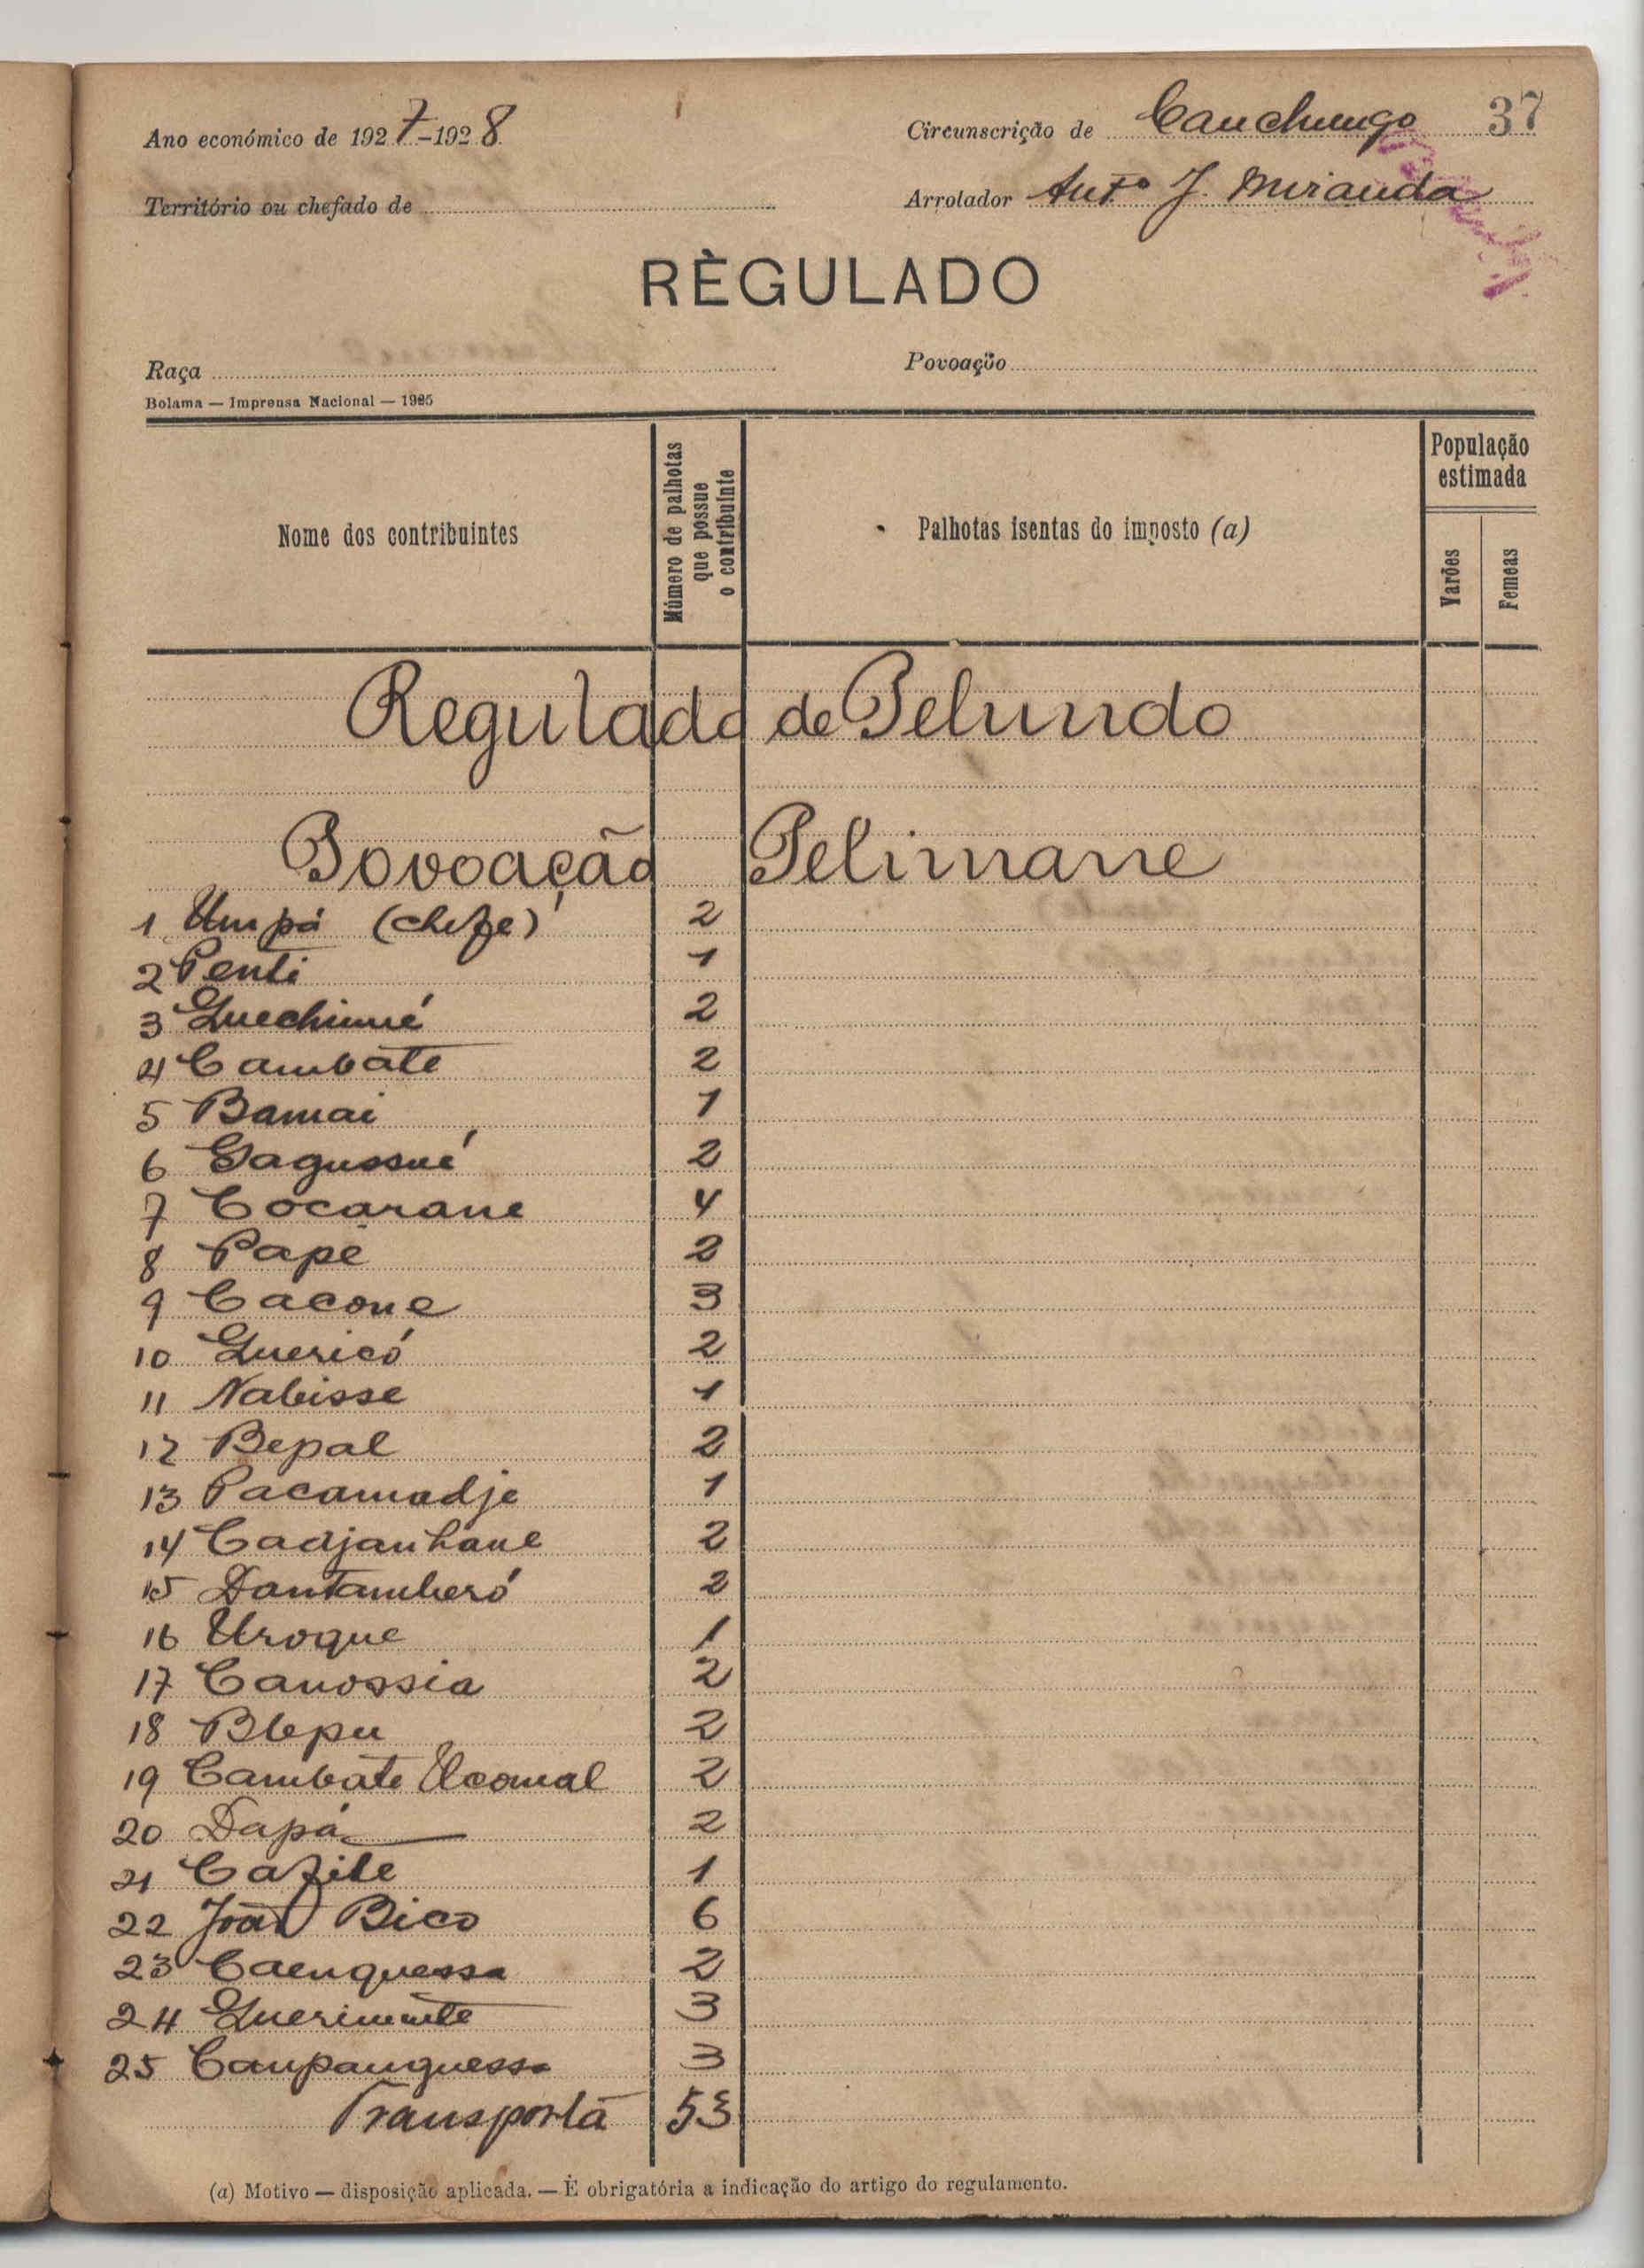 Ano económico de 1927-1928
Circunscrição de Canchungo 37
Território ou chefado de
Arrolador Antº J. Miranda
RÈGULADO
Raça
Povoação
Bolama — Imprensa Nacional — 1925
Nome dos contribuintes
Número de palhotas que possue o contribuinte
Palhotas isentas do imposto (a)
População estimada
Varões
Femeas
Regulado de Pelundo
Povoação Pelimane
1 Umpá (chefe) 2
2 Penti 1
3 Quechimé 2
4 Cambate 2
5 Bamai 1
6 Gagussué 2
7 Cocarane 4
8 Papé 2
9 Cacone 3
10 Quericó 2
11 Nabisse 1
12 Bepal 2
13 Pacamadje 1
14 Cadjanhane 2
15 Dantamberó 2
16 Uroque 1
17 Canossia 2
18 Blepu 2
19 Cambate Ucomal 2
20 Dapá 2
21 Cafile 1
22 João Bico 6
23 Caenquessa 2
24 Querimente 3
25 Caupanguessa 3
Transporta 53
(a) Motivo — disposição aplicada. — É obrigatória a indicação do artigo do regulamento.